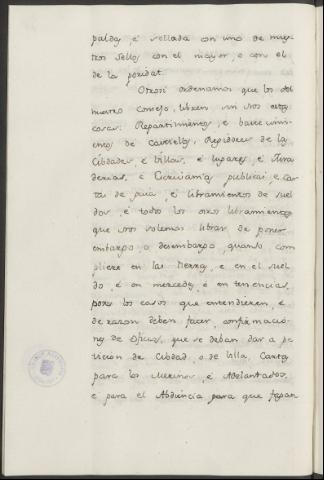 paldas, é sellada con uno de nues-
tros sellos con el mayor, o con el
de la poridat.
Otrosi ordenamos que los del
nuestro consejo, libren sin nos estas
cosas: Repartimientos, é bastecimi-
entos de castiellos, Regidores de las
Cibdades, é Villas, é lugares, é Jura-
derias, é Escrivanias publicas, é car-
tas de guia, é libramientos de suel-
dos, é todos los otros libramientos
que nos solemos librar de poner
embargo o desembargo, quando com-
pliere en las tierras, é en el suel-
do, é en mercedes, é en tenencias,
pora los casos que entendieren, é
de razon deben facer, confirmacio-
nes de oficios, que se deban dar a pe-
ticion de Cibdad, o de Villa, Cartas
para los Merinos, é Adelantados,
e para el Abdiencia para que fagan